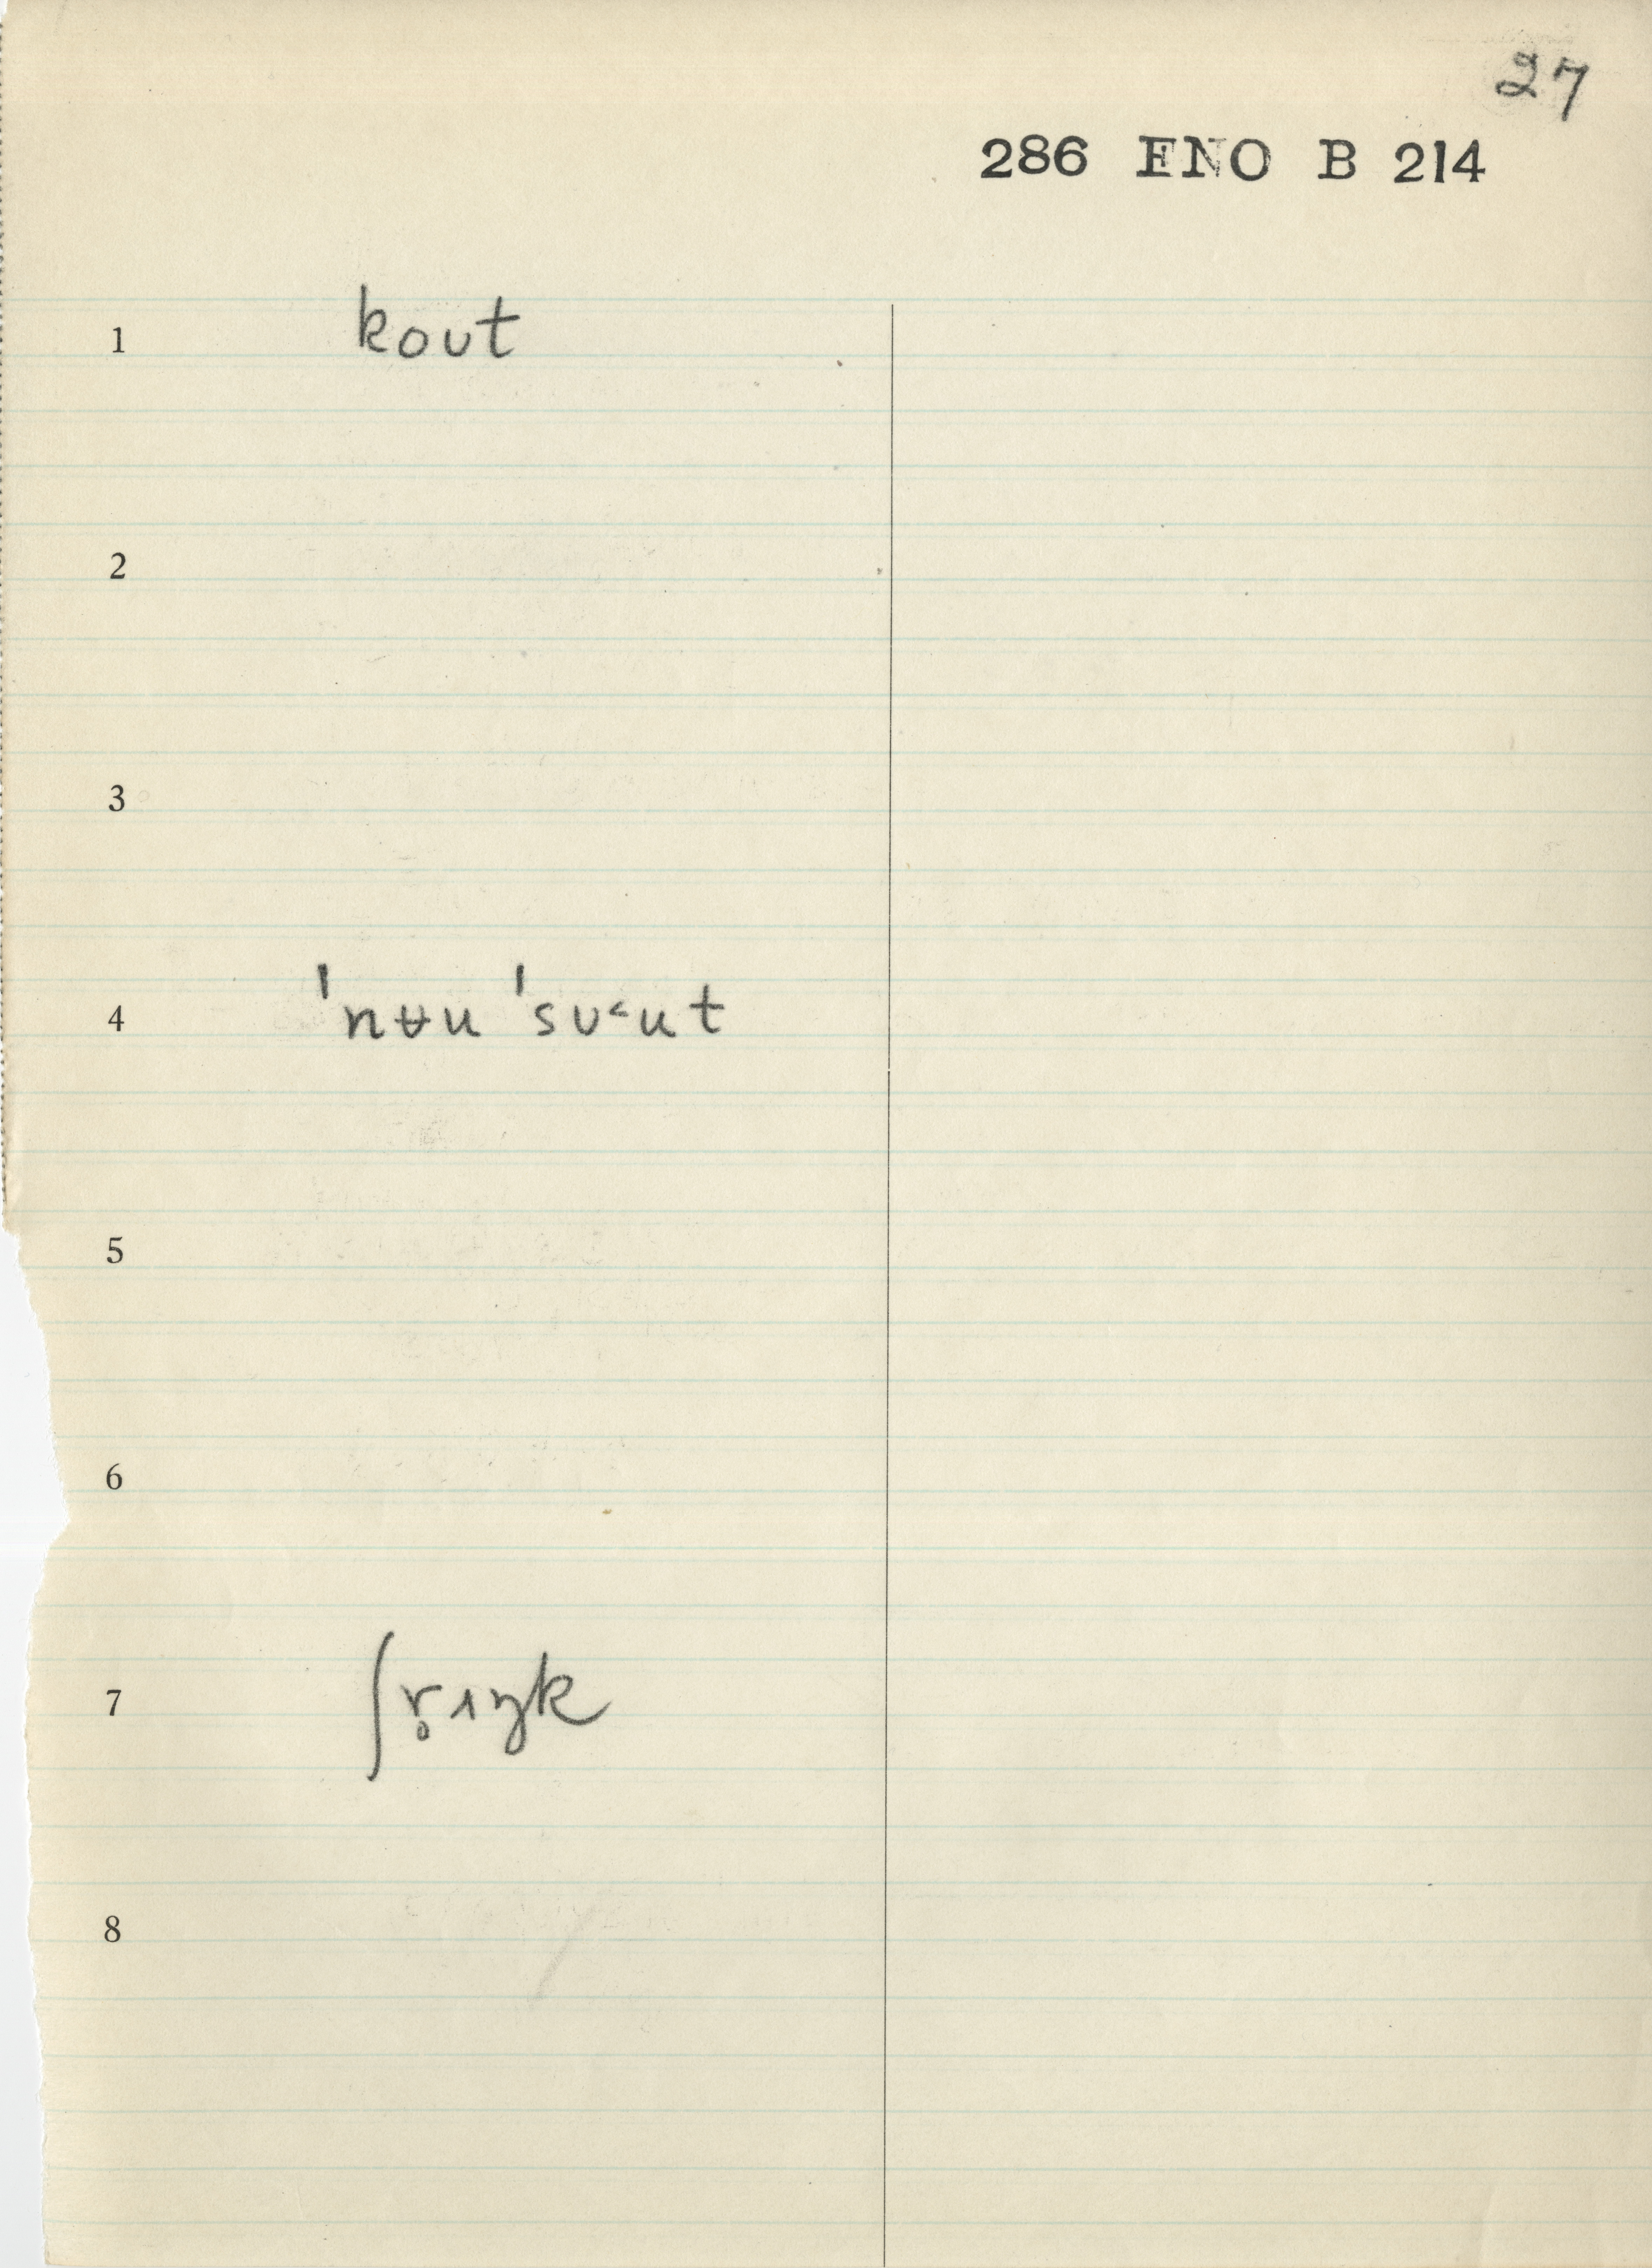 27
286 ENO B 214
1 koʊt
2
3
4 ˈnʉu ˈsu˂ut
5
6
7 ʃr̥ɪŋk
8